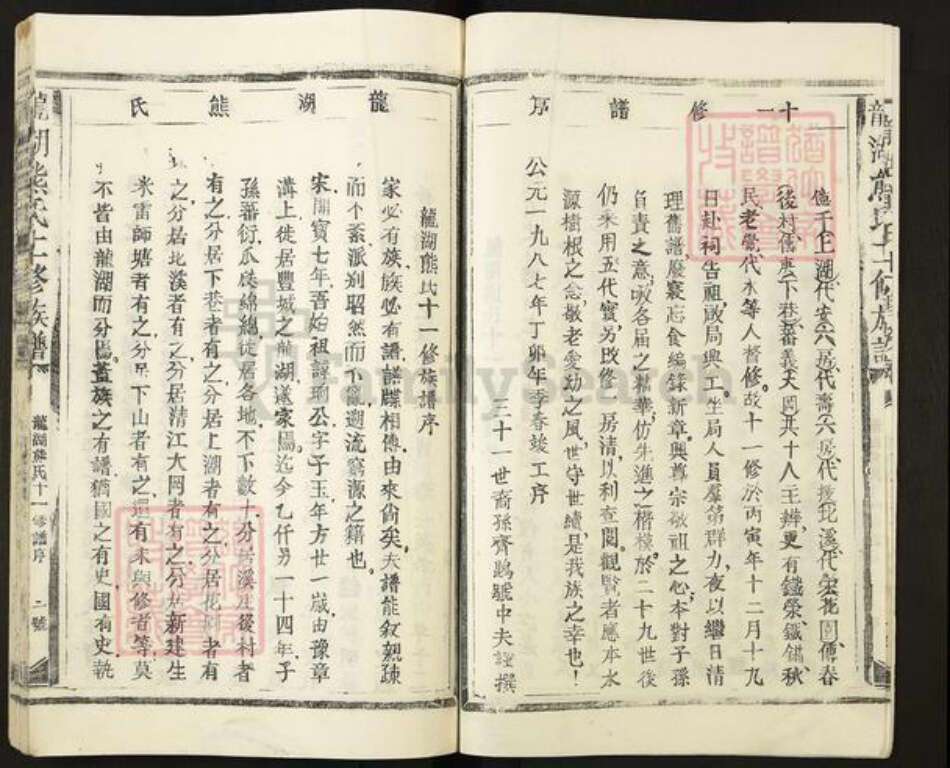 十一修譜序
後村儒惠下巷蕃義天岡共十八主辦更有鐵榮鐵鏞秋
民老黌代水等人督修故十一修於丙寅年十二月十九
日赴祠告祖啟局興工坐局人員羣策群力夜以繼日清
理舊譜廢寢忘食編錄新章興尊宗敬祖之心本對子孫
負責之意吸各届之精華仿先進之楷模於二十九世後
仍采用五代實另改修房清以利查閱觀覽者應本水
源樹根之念敬老愛幼之風世守世績是我族之幸也！
公元一九八七年丁卯年季春竣工序
三十一世裔孫齊鵾號中夫謹撰
龍湖熊氏
龍湖熊氏十一修族譜序
家必有族族必有譜譜牒相傳由來尚矣夫譜能敘親疎
而不紊派别昭然而不亂遡流窮源之籍也
宋開寶七年吾始祖諱瑚公字子玉年方廿一歲由豫章
溝上徙居豐城之龍湖遂家焉迄今乙仟另一十四年子
孫蕃衍瓜瓞綿綿徙居各地不下數十分居溪庄後村者
有之分居下巷者有之分居上湖者有之分居花園者有
之分居北溪者有之分居清江大岡者有之分居新建生
米雷師塘者有之分居下山者有之還有未與修者等莫
不皆由龍湖而分焉蓋族之有譜猶國之有史國有史執
龍湖熊氏十一修族譜
龍湖熊氏十一修譜序
二號
FamilySearch